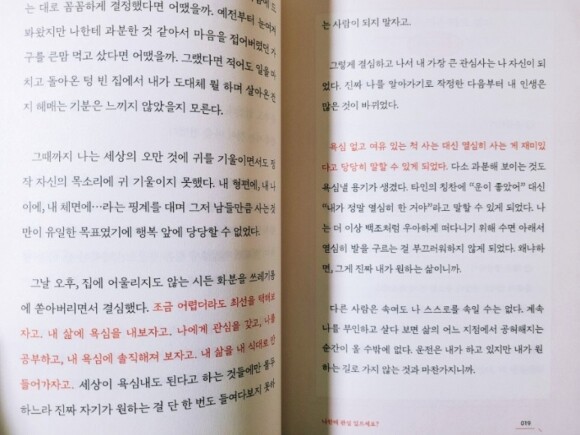 는 대로 꼼꼼하게 결정했다면 어땠을까. 예전부터 눈여겨
봐왔지만 나한테 과분한 것 같아서 마음을 접어버렸던 가
구를 큰맘 먹고 샀다면 어땠을까. 그랬다면 적어도 일을 마
치고 돌아온 텅 빈 집에서 내가 도대체 뭘 하며 살아온
지 헤매는 기분은 느끼지 않았을지 모른다.
그때까지 나는 세상의 오만 것에 귀를 기울이면서도 정
작 자신의 목소리에 귀 기울이지 못했다. 내 형편에, 내 나
이에, 내 체면에…라는 핑계를 대며 그저 남들만큼 사는 것
만이 유일한 목표였기에 행복 앞에 당당할 수 없었다.
그날 오후, 집에 어울리지도 않는 시든 화분을 쓰레기통
에 쏟아버리면서 결심했다. 조금 어렵더라도 최선을
자고. 내 삶에 욕심을 내보자고. 나에게 관심을 갖고, 나를
공부하고, 내 욕심에 솔직해져 보자고. 내 삶을 내 식대로 만
들어가자고. 세상이 욕심내도 된다고 하는 것들에만 몰두
하느라 진짜 자기가 원하는 걸 단 한 번도 들여다보지 못하
는 사람이 되지 말자고.
그렇게 결심하고 나서 내 가장 큰 관심사는 나 자신이 되
었다. 진짜 나를 알아가기로 작정한 다음부터 내 인생은
많은 것이 바뀌었다.
욕심 없고 여유 있는 척 사는 대신 열심히 사는 게 재미있
다고 당당히 말할 수 있게 되었다. 다소 과분해 보이는 것도
욕심낼 용기가 생겼다. 타인의 칭찬에 “운이 좋았어” 대신
“내가 정말 열심히 한 거야”라고 말할 수 있게 되었다. 나
는 더 이상 백조처럼 우아하게 떠다니기 위해 수면 아래서
열심히 발을 구르는 걸 부끄러워하지 않게 되었다. 왜냐하
면, 그게 진짜 내가 원하는 삶이니까.
다른 사람은 속여도 나 스스로를 속일 수는 없다. 계속
나를 부인하고 살다 보면 삶의 어느 지점에서 공허해지는
순간이 올 수밖에 없다. 운전은 내가 하고 있지만 내가 원
하는 길로 가지 않는 것과 마찬가지니까.
나한테 관심 있으세요?
019